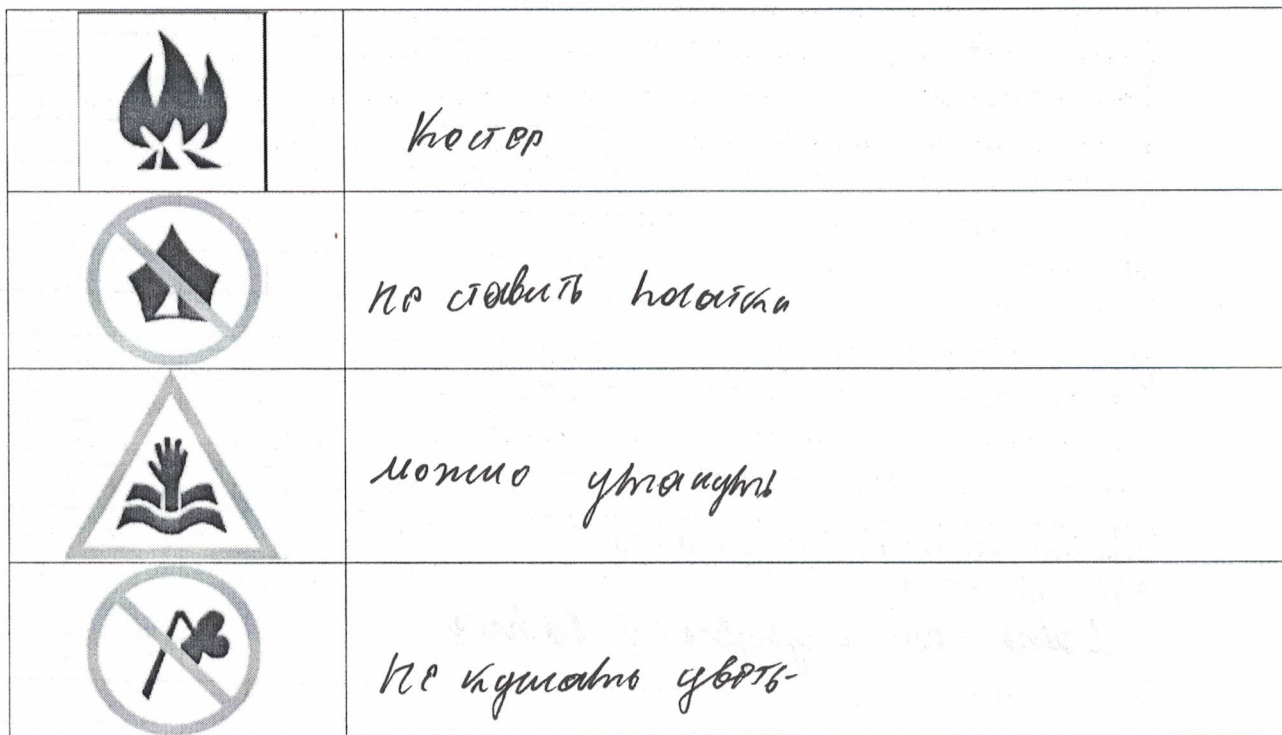 Костер
не ставить палатки
можно утануть
не кушать цветы